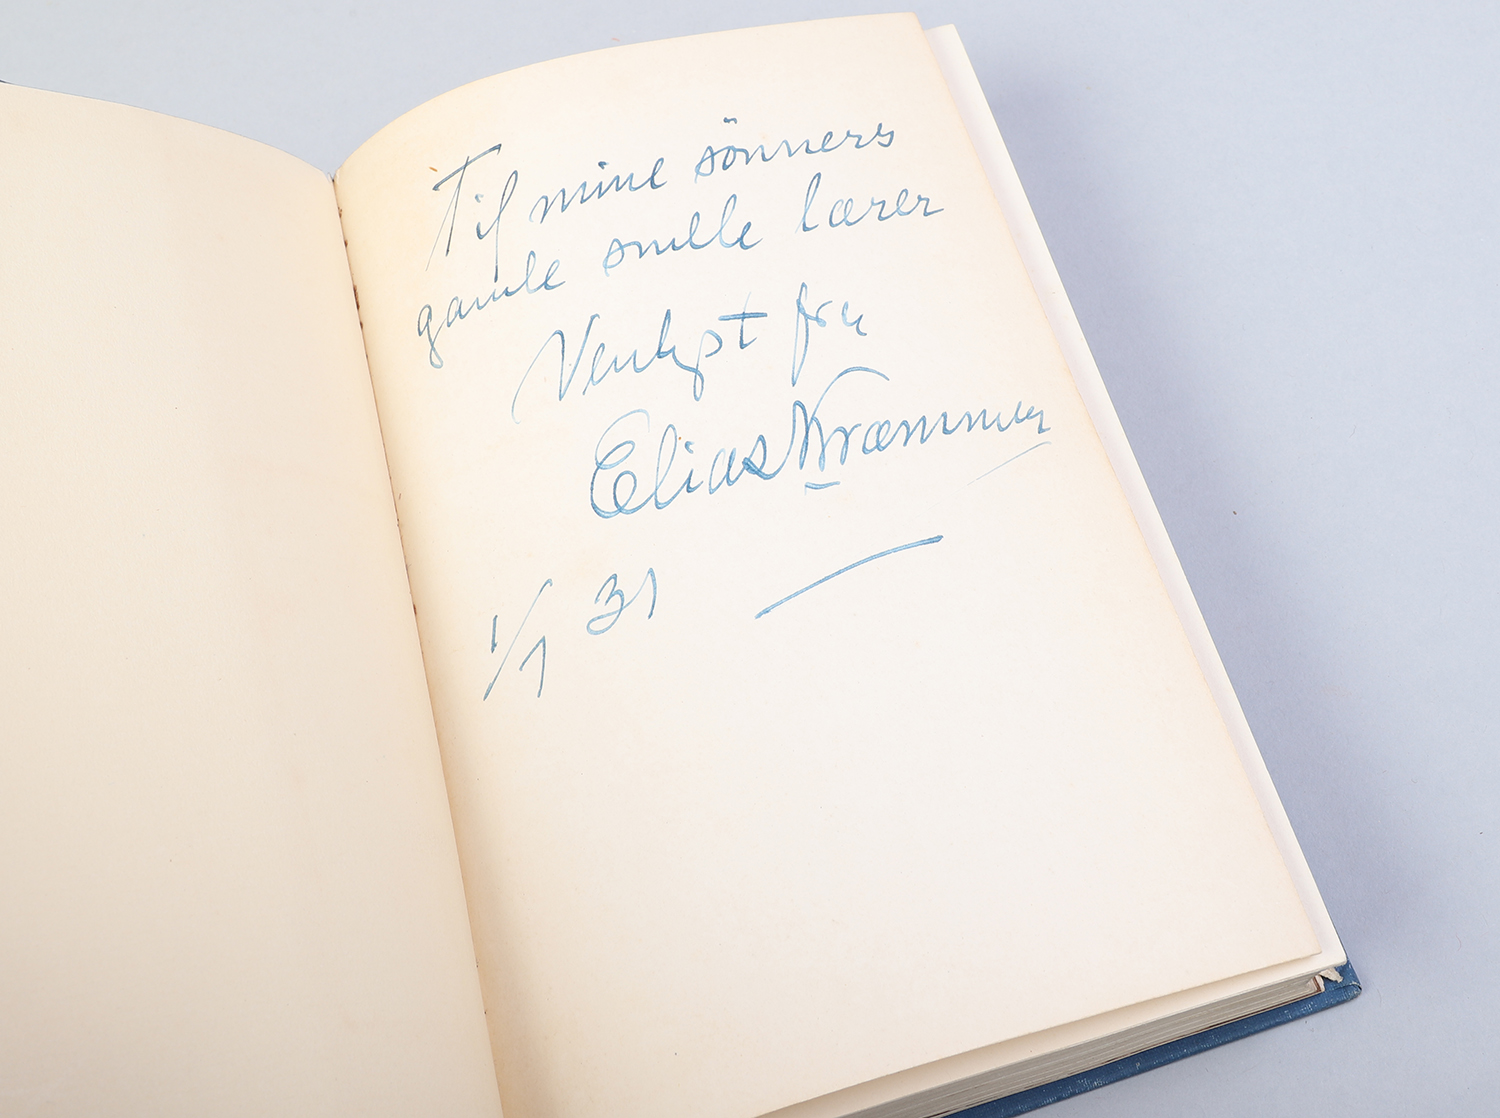 Til mine sönners
gamle snille lærer
Venligst fra
Elias Kræmmer
1/7 31